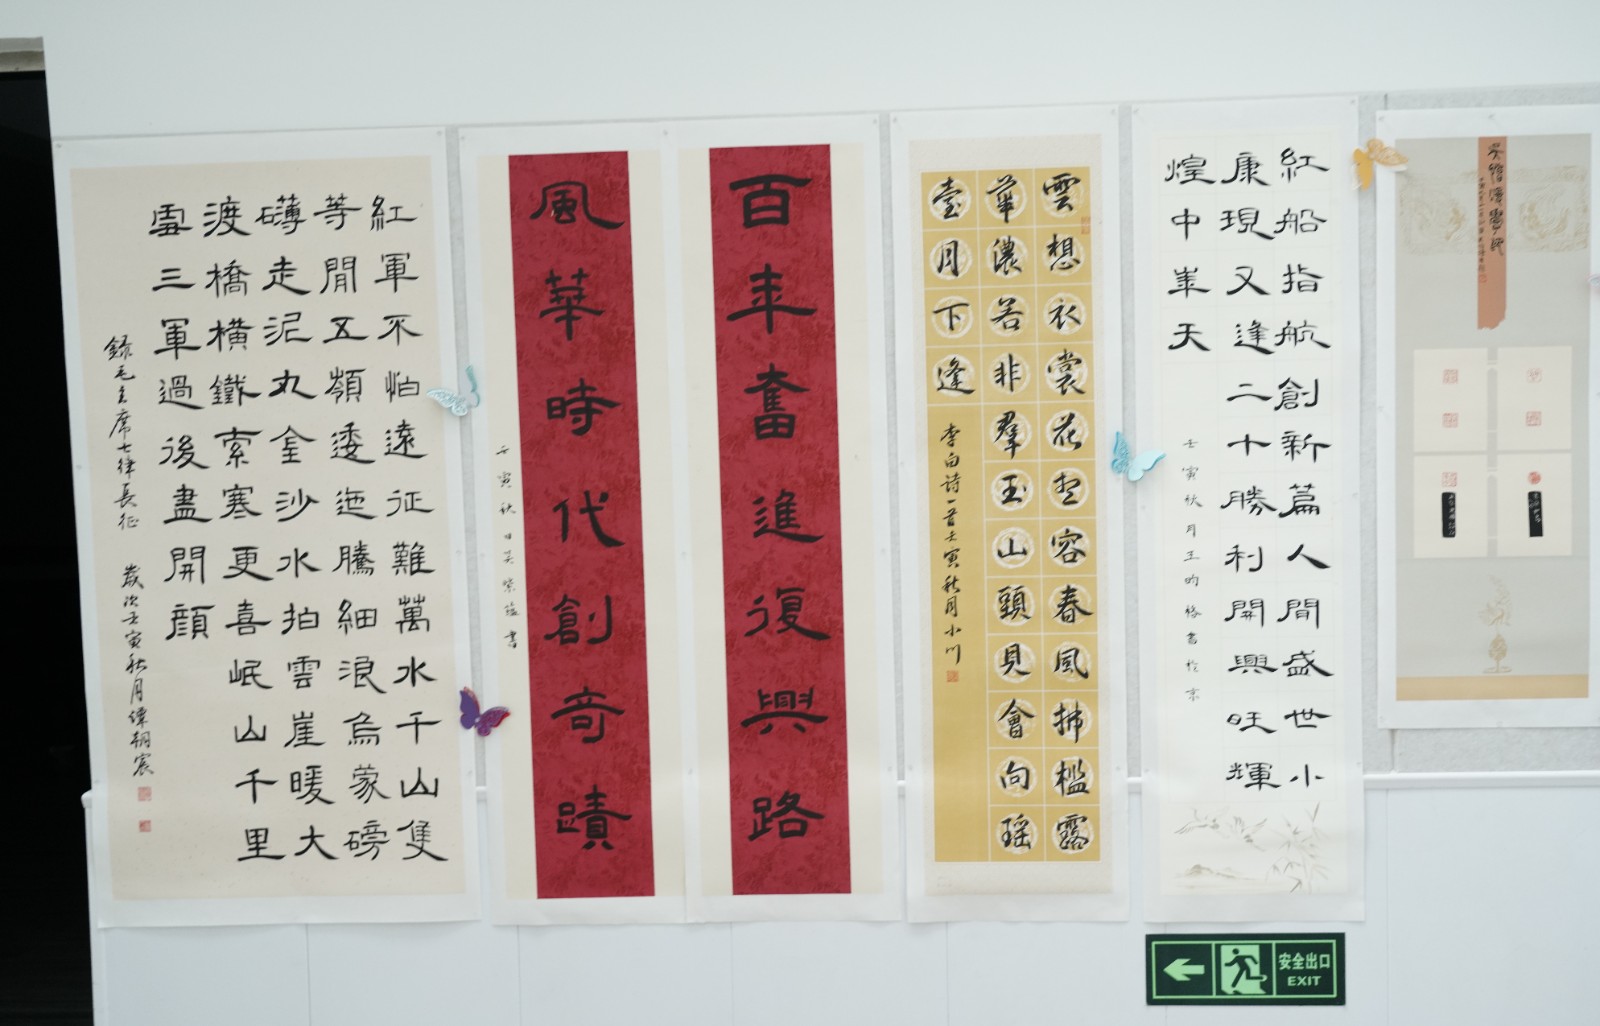 紅軍不怕遠征難萬水千山隻
等閒五嶺逶迤騰細浪烏蒙磅
礴走泥丸金沙水拍雲崖暖大
渡橋橫鐵索寒更喜岷山千里
雪三軍過後盡開顏
錄毛主席七律長征 歲次壬寅秋月譚朝宸
百年奮進復興路
風華時代創奇蹟
壬寅秋日吳紫蕴書
雲想衣裳花想容春風拂檻露
華濃若非羣玉山頭見會向瑶
臺月下逢
李白诗一首壬寅秋月小川
紅船指航創新篇人間盛世小
康現又逢二十勝利開興旺輝
煌中華天
壬寅秋月王昀格書於京
安全出口
EXIT